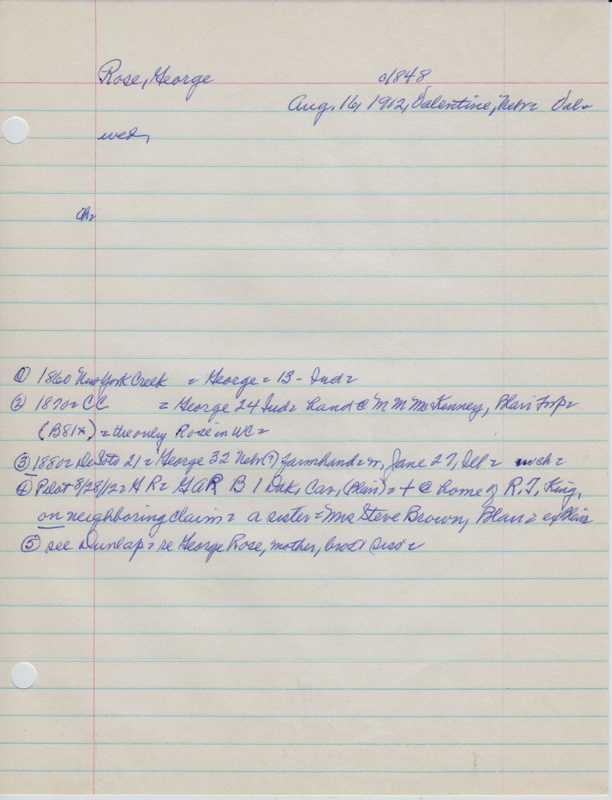 Rose, George c1848
Aug. 16, 1912, Valentine, Nebr= Val=
wed,
ch=
① 1860 New York Creek = George = 13 - Ind=
② 1870= CC = George 24 Ind= hand @ M M McKenney, Blair Twp=
(B81*) = the only Rose in WC=
③ 1880= DeSoto 21= George 32 Nebr(?) farmhand= w, Jane 27, Ill=
④ Pilot 8/28/12= G R= GAR B 1 Dak, Cav, (Blair)= + @ home of R. T. King,
on neighboring claim= a sister= Mrs Steve Brown, Blair=
⑤ see Dunlap= re George Rose, mother, bros + siss=